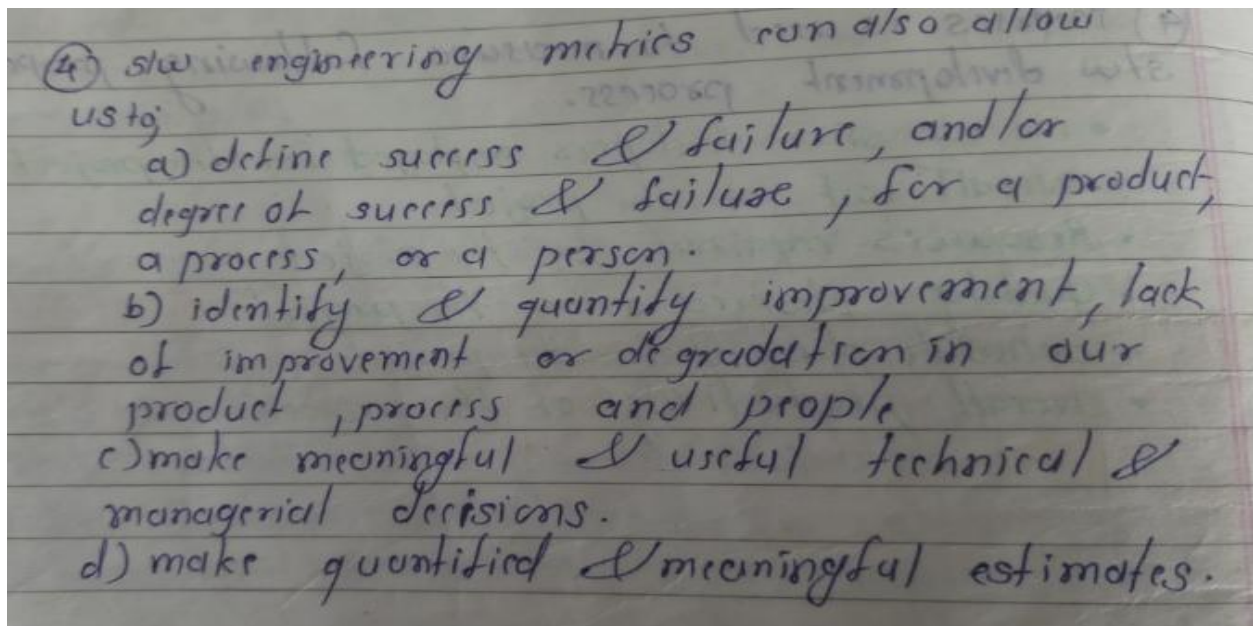 ④ s/w engineering metrics can also allow
us to;
a) define success & failure, and/or
degree of success & failure, for a product,
a process, or a person.
b) identify & quantify improvement, lack
of improvement or degradation in our
product, process and people
c) make meaningful & useful technical &
managerial decisions.
d) make quantified & meaningful estimates.